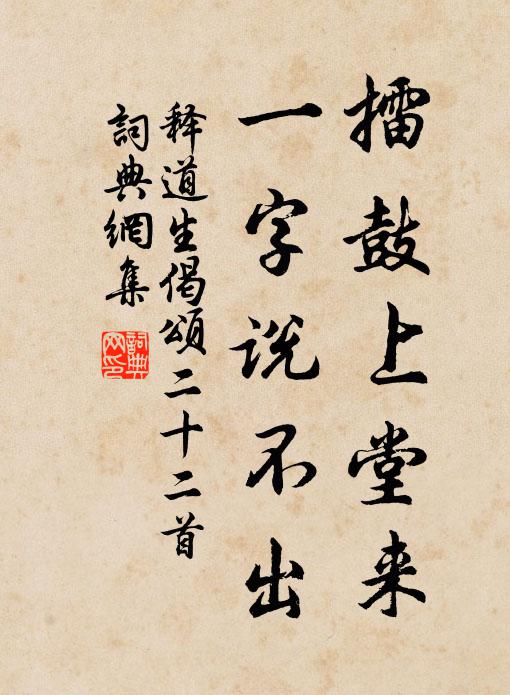 擂鼓上堂来
一字说不出
释道生偈颂二十二首
詞典網集
詞典网印